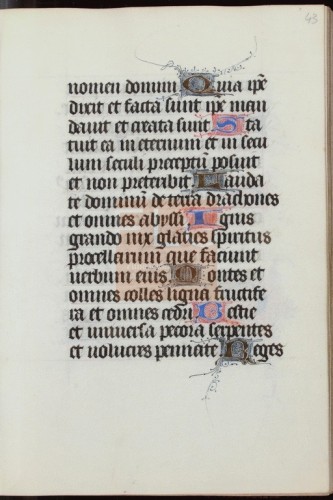 43
nomen domini Quia ip̄e
dixit et facta sunt ip̄e man
dauit et creata sunt Sta
tuit ea in eternum et in secu
lum seculi preceptū posuit
et non preteribit Lauda
te dominū de terra drachones
et omnes abyssi Ignis
grando nix glaties spiritus
procellarum que faciunt
uerbum eius Montes et
omnes colles ligna fructife
ra et omnes cedri Bestie
et uniuersa pecora serpentes
et uolucres pennate Reges